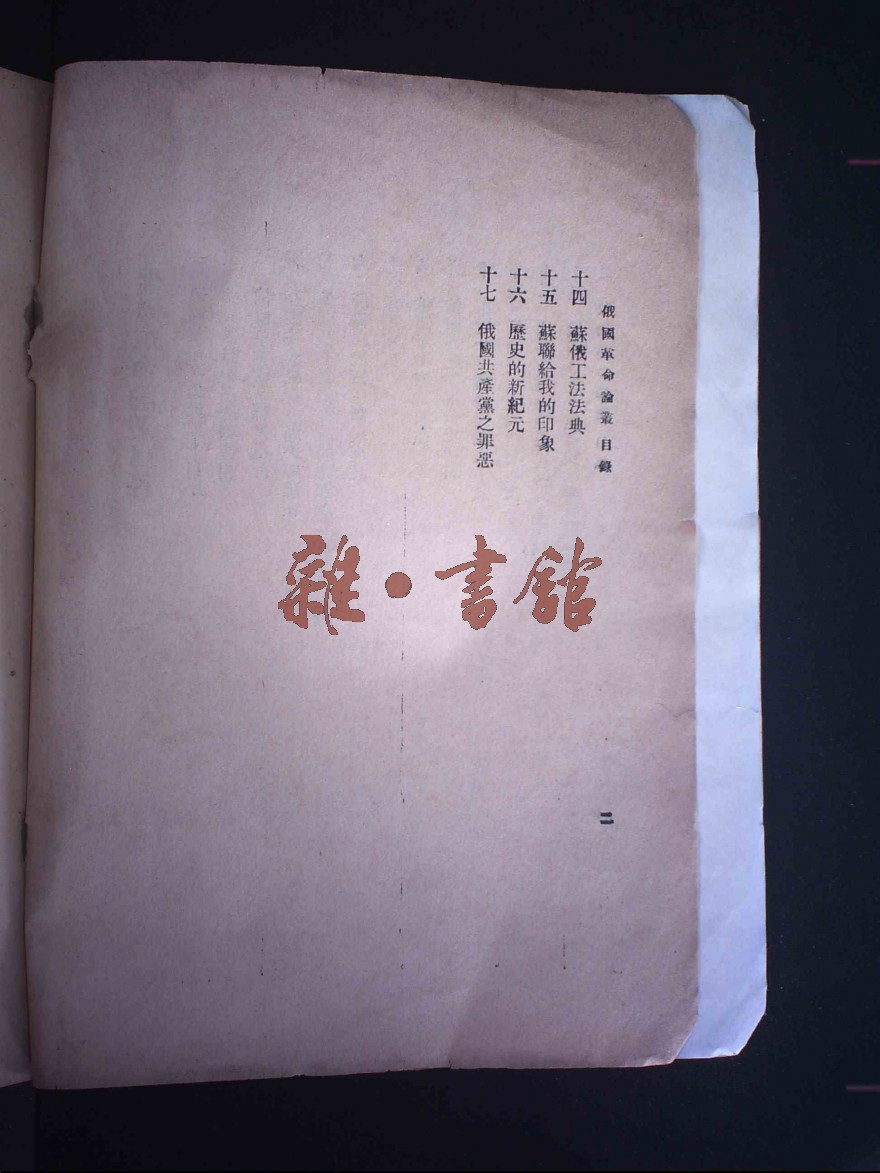 俄國革命論叢 目錄
十四 蘇俄工法法典
十五 蘇聯給我的印象
十六 歷史的新紀元
十七 俄國共產黨之罪惡
二
雜·書館